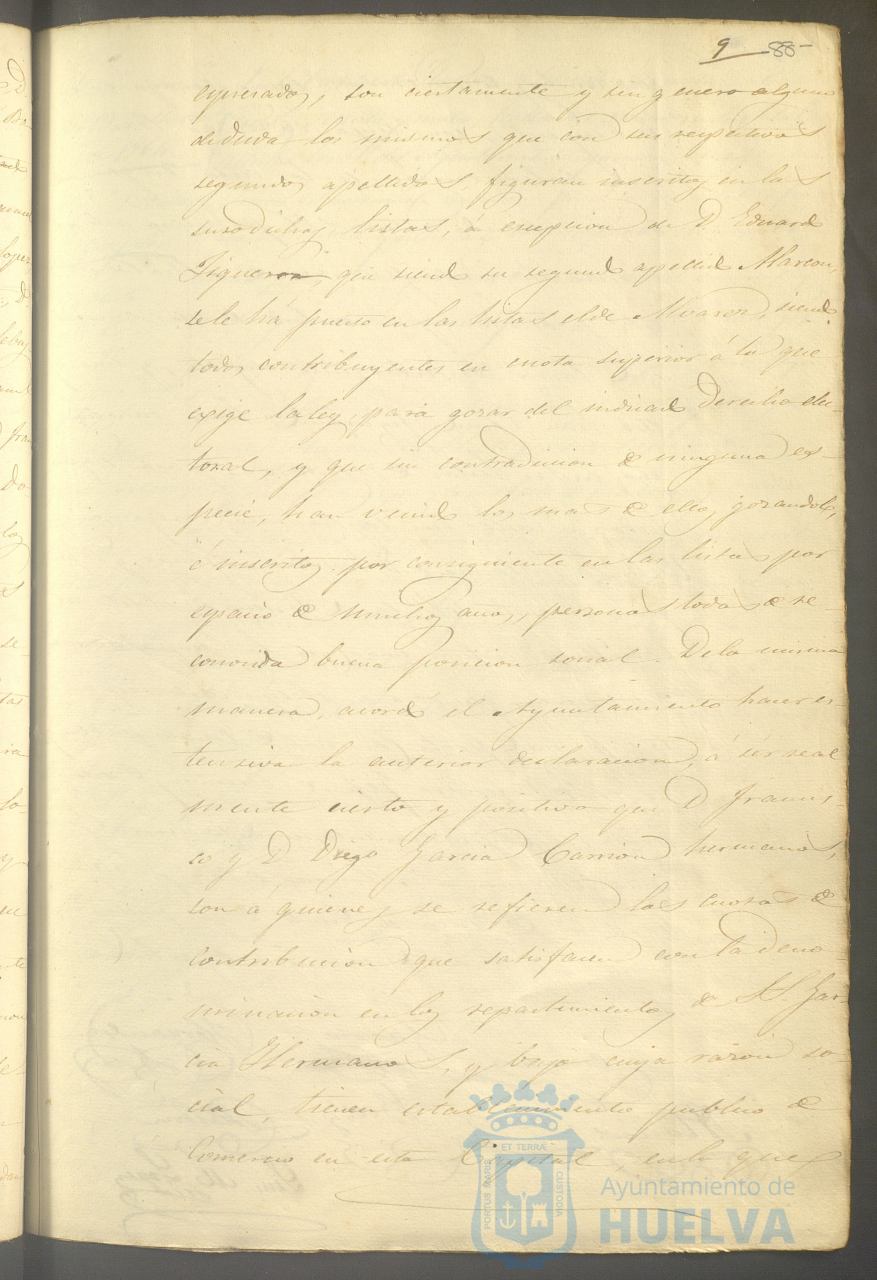 9 88
espresados, son ciertamente y sin genero alguno
de duda los mismos que con sus respectivos
segundos apellidos, figuran inscritos en las
susodichas listas, á escepcion de D. Eduardo
Figueroa, que siendo su segundo apellido Alarcon,
se le há puesto en las listas el de Alvarez, siendo
todos contribuyentes en cuota superior á la que
exige la ley, para gozar del indicado derecho elec-
toral, y que sin contradicion de ninguna es-
pecie, han venido los mas de ellos gozandolo,
é inscritos por consiguiente en las listas por
espacio de muchos años, personas todas de re-
conocida buena posicion social. De la misma
manera, acordó el Ayuntamiento hacer es-
tensiva la anterior declaracion, á ser real
mente cierto y positivo que D. Francis-
co y D. Diego Garcia Carrion hermanos,
son á quienes se refieren las cuotas de
contribucion que satisfacen con la deno-
minacion en los repartimientos de S.S. Gar-
cia Hermanos, y bajo cuya razon so-
cial, tienen establecimiento publico de
Comercio en esta Capital, en lo que
PORTUS MARIS ET TERRÆ CUSTODIA
Ayuntamiento de
HUELVA